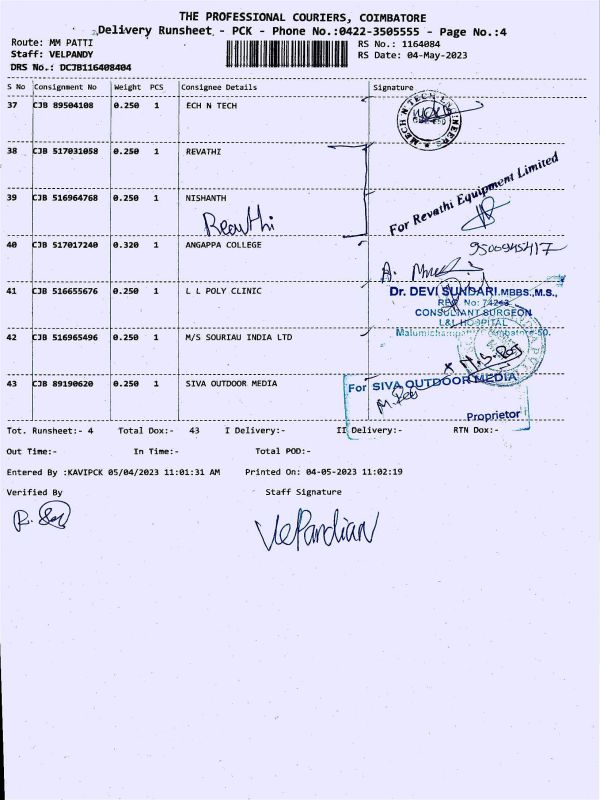 THE PROFESSIONAL COURIERS, COIMBATORE
Delivery Runsheet - PCK - Phone No.:0422-3505555 - Page No.:4
Route: MM PATTI RS No.: 1164084
Staff: VELPANDY RS Date: 04-May-2023
DRS No.: DCJB116408404
S No Consignment No Weight PCS Consignee Details Signature
37 CJB 89504108 0.250 1 ECH N TECH
38 CJB 517031058 0.250 1 REVATHI
For Revathi Equipment Limited
39 CJB 516964768 0.250 1 NISHANTH
Revathi
40 CJB 517017240 0.320 1 ANGAPPA COLLEGE
9500945417
41 CJB 516655676 0.250 1 L L POLY CLINIC
Dr. DEVI SUNDARI.MBBS.,M.S.,
REG No: 74263
CONSULTANT SURGEON
L&L HOSPITAL
42 CJB 516965496 0.250 1 M/S SOURIAU INDIA LTD
43 CJB 89190620 0.250 1 SIVA OUTDOOR MEDIA
For SIVA OUTDOOR MEDIA
Proprietor
Tot. Runsheet:- 4 Total Dox:- 43 I Delivery:- II Delivery:- RTN Dox:-
Out Time:- In Time:- Total POD:-
Entered By :KAVIPCK 05/04/2023 11:01:31 AM Printed On: 04-05-2023 11:02:19
Verified By Staff Signature
VelPandian